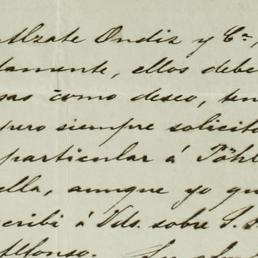 Alzate Ondiz y Cª,
damente, ellos debe
sas como deseo, ten
puro siempre solicito
particular á Töhl
ella, aunque yo qu
scribi á Vds. sobre S.
Alfonso.